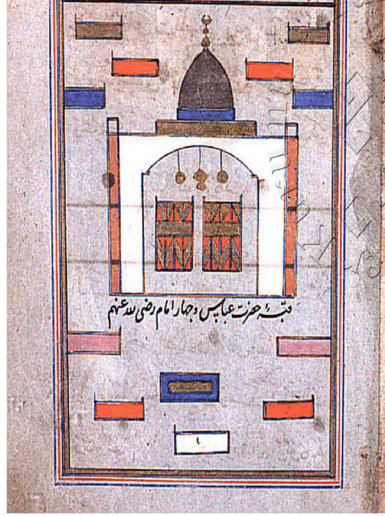 قبۀ حضرت عباس و چهار امام رضی الله عنهم